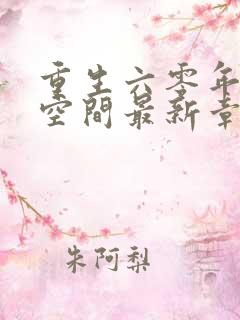 重生六零年
空間最新章
朱阿梨